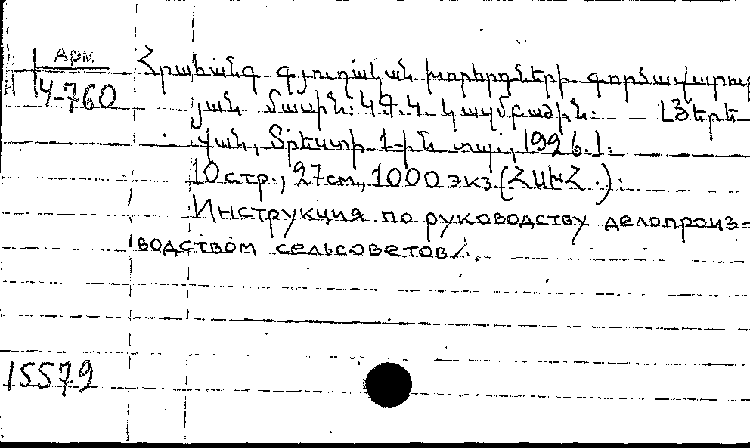 Арм.
4-760
Հրահանգ գյուղական խորհրդների գործավարու
յան մասին: Կ.Գ.Կ. կազմբաժին: [Երե
վան, Տրեստի 1-ին տպ., 1926.]:
10 стр., 27 см., 1000 экз. (ՀՍԽՀ.):
Инструкция по руководству делопроиз-
водством сельсоветов/.
15579